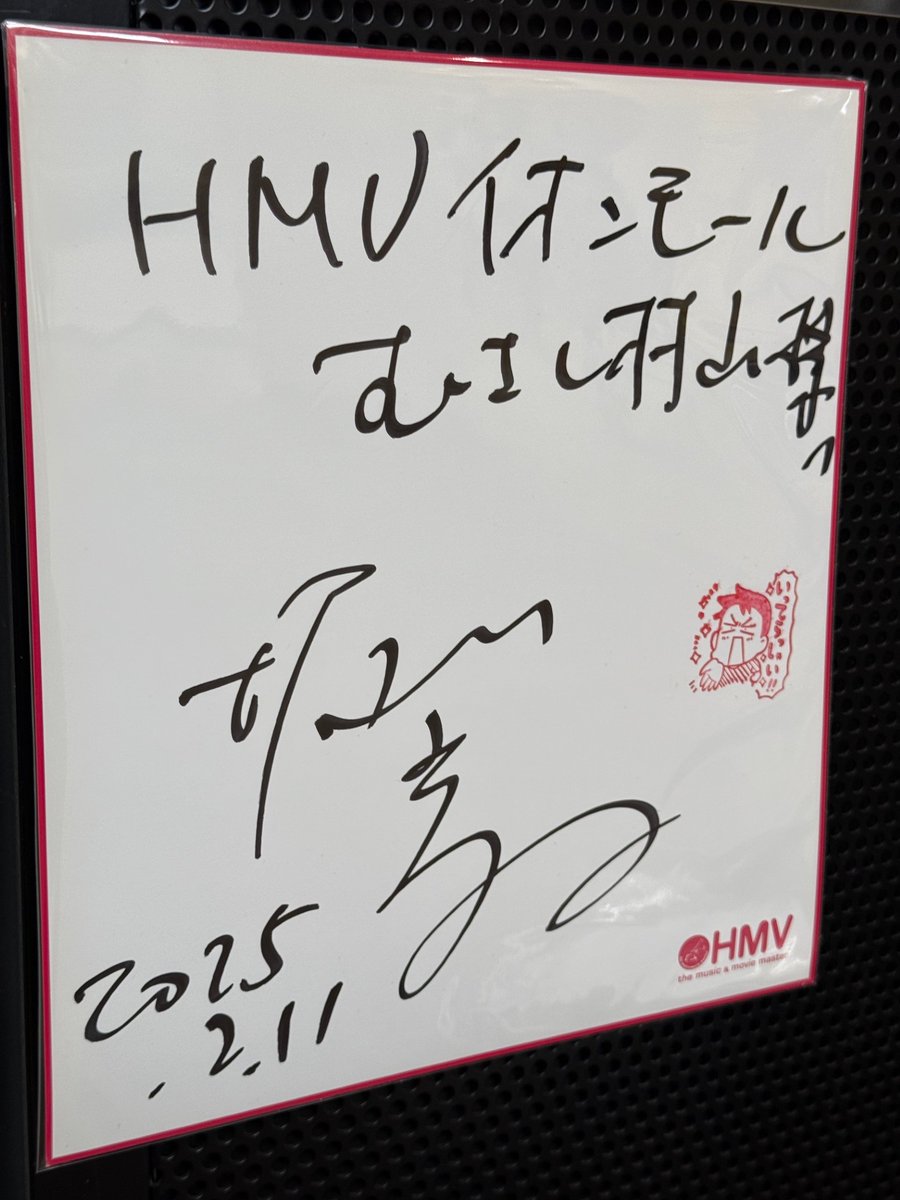 HMV イオンモール
むさし村山様
へ
2025
.2.11
HMV
the music & movie master